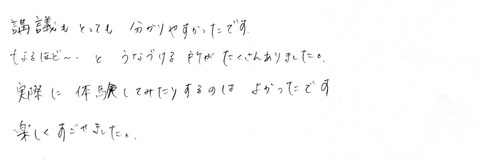 講議もとっても 分かりやすかったです.
なるほど〜. と うなづける所が たくさんありました。
実際に 体験してみたりするのは よかったです
楽しくすごせました。